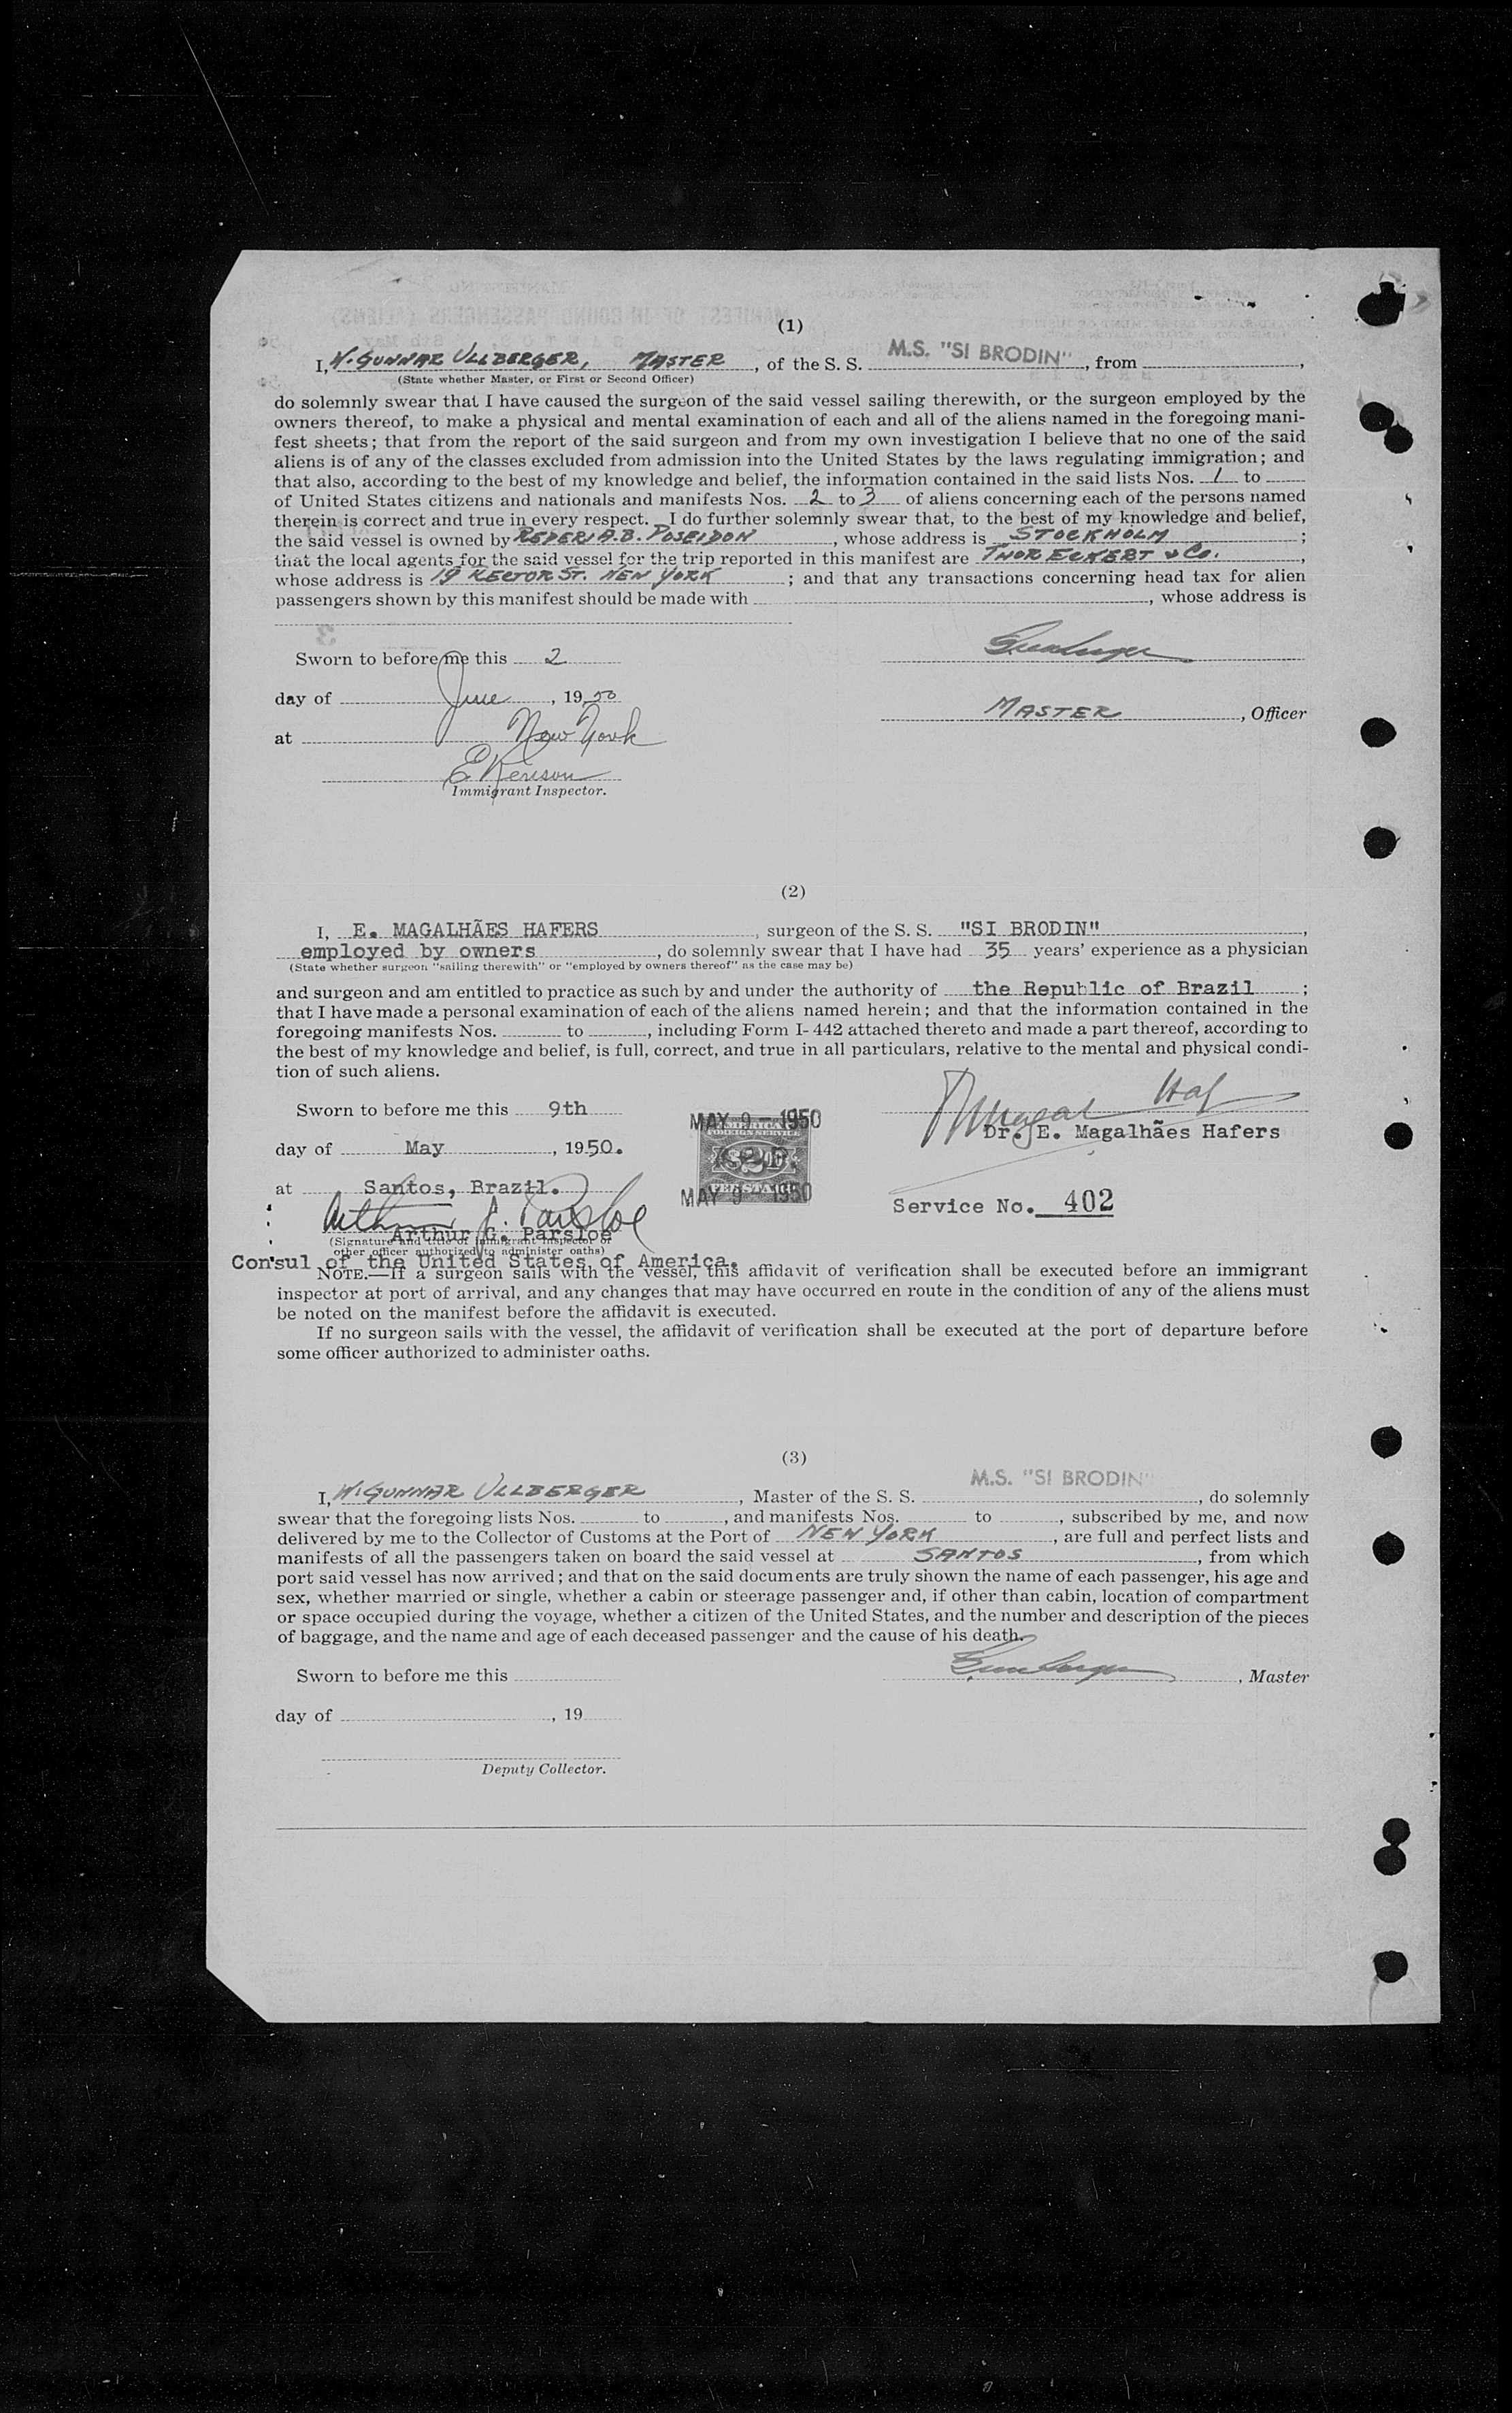 (1)
I, W. GUNNAR ULLBERGER, MASTER, of the S. S. M.S. "SI BRODIN", from ,
(State whether Master, or First or Second Officer)
do solemnly swear that I have caused the surgeon of the said vessel sailing therewith, or the surgeon employed by the
owners thereof, to make a physical and mental examination of each and all of the aliens named in the foregoing mani-
fest sheets; that from the report of the said surgeon and from my own investigation I believe that no one of the said
aliens is of any of the classes excluded from admission into the United States by the laws regulating immigration; and
that also, according to the best of my knowledge and belief, the information contained in the said lists Nos. 1 to
of United States citizens and nationals and manifests Nos. 2 to 3 of aliens concerning each of the persons named
therein is correct and true in every respect. I do further solemnly swear that, to the best of my knowledge and belief,
the said vessel is owned by REDERI A.B. POSEIDON, whose address is STOCKHOLM ;
that the local agents for the said vessel for the trip reported in this manifest are THOR ECKERT & CO. ,
whose address is 19 RECTOR ST. NEW YORK ; and that any transactions concerning head tax for alien
passengers shown by this manifest should be made with , whose address is
Sworn to before me this 2
day of June, 1950
MASTER, Officer
at New York
E Kenson
Immigrant Inspector.
(2)
I, E. MAGALHÃES HAFERS, surgeon of the S. S. "SI BRODIN" ,
employed by owners, do solemnly swear that I have had 35 years' experience as a physician
(State whether surgeon "sailing therewith" or "employed by owners thereof" as the case may be)
and surgeon and am entitled to practice as such by and under the authority of the Republic of Brazil ;
that I have made a personal examination of each of the aliens named herein; and that the information contained in the
foregoing manifests Nos. to , including Form I-442 attached thereto and made a part thereof, according to
the best of my knowledge and belief, is full, correct, and true in all particulars, relative to the mental and physical condi-
tion of such aliens.
Sworn to before me this 9th
MAY 9 - 1950
Dr. E. Magalhães Hafers
day of May, 1950.
at Santos, Brazil.
MAY 9 - 1950
Service No. 402
Arthur G. Parsloe
Arthur G. Parsloe
(Signature and title of immigrant inspector or
other officer authorized to administer oaths)
Consul of the United States of America.
NOTE.—If a surgeon sails with the vessel, this affidavit of verification shall be executed before an immigrant
inspector at port of arrival, and any changes that may have occurred en route in the condition of any of the aliens must
be noted on the manifest before the affidavit is executed.
If no surgeon sails with the vessel, the affidavit of verification shall be executed at the port of departure before
some officer authorized to administer oaths.
(3)
I, W. GUNNAR ULLBERGER, Master of the S. S. M.S. "SI BRODIN", do solemnly
swear that the foregoing lists Nos. to , and manifests Nos. to , subscribed by me, and now
delivered by me to the Collector of Customs at the Port of NEW YORK, are full and perfect lists and
manifests of all the passengers taken on board the said vessel at SANTOS, from which
port said vessel has now arrived; and that on the said documents are truly shown the name of each passenger, his age and
sex, whether married or single, whether a cabin or steerage passenger and, if other than cabin, location of compartment
or space occupied during the voyage, whether a citizen of the United States, and the number and description of the pieces
of baggage, and the name and age of each deceased passenger and the cause of his death.
Sworn to before me this
, Master
day of , 19
Deputy Collector.